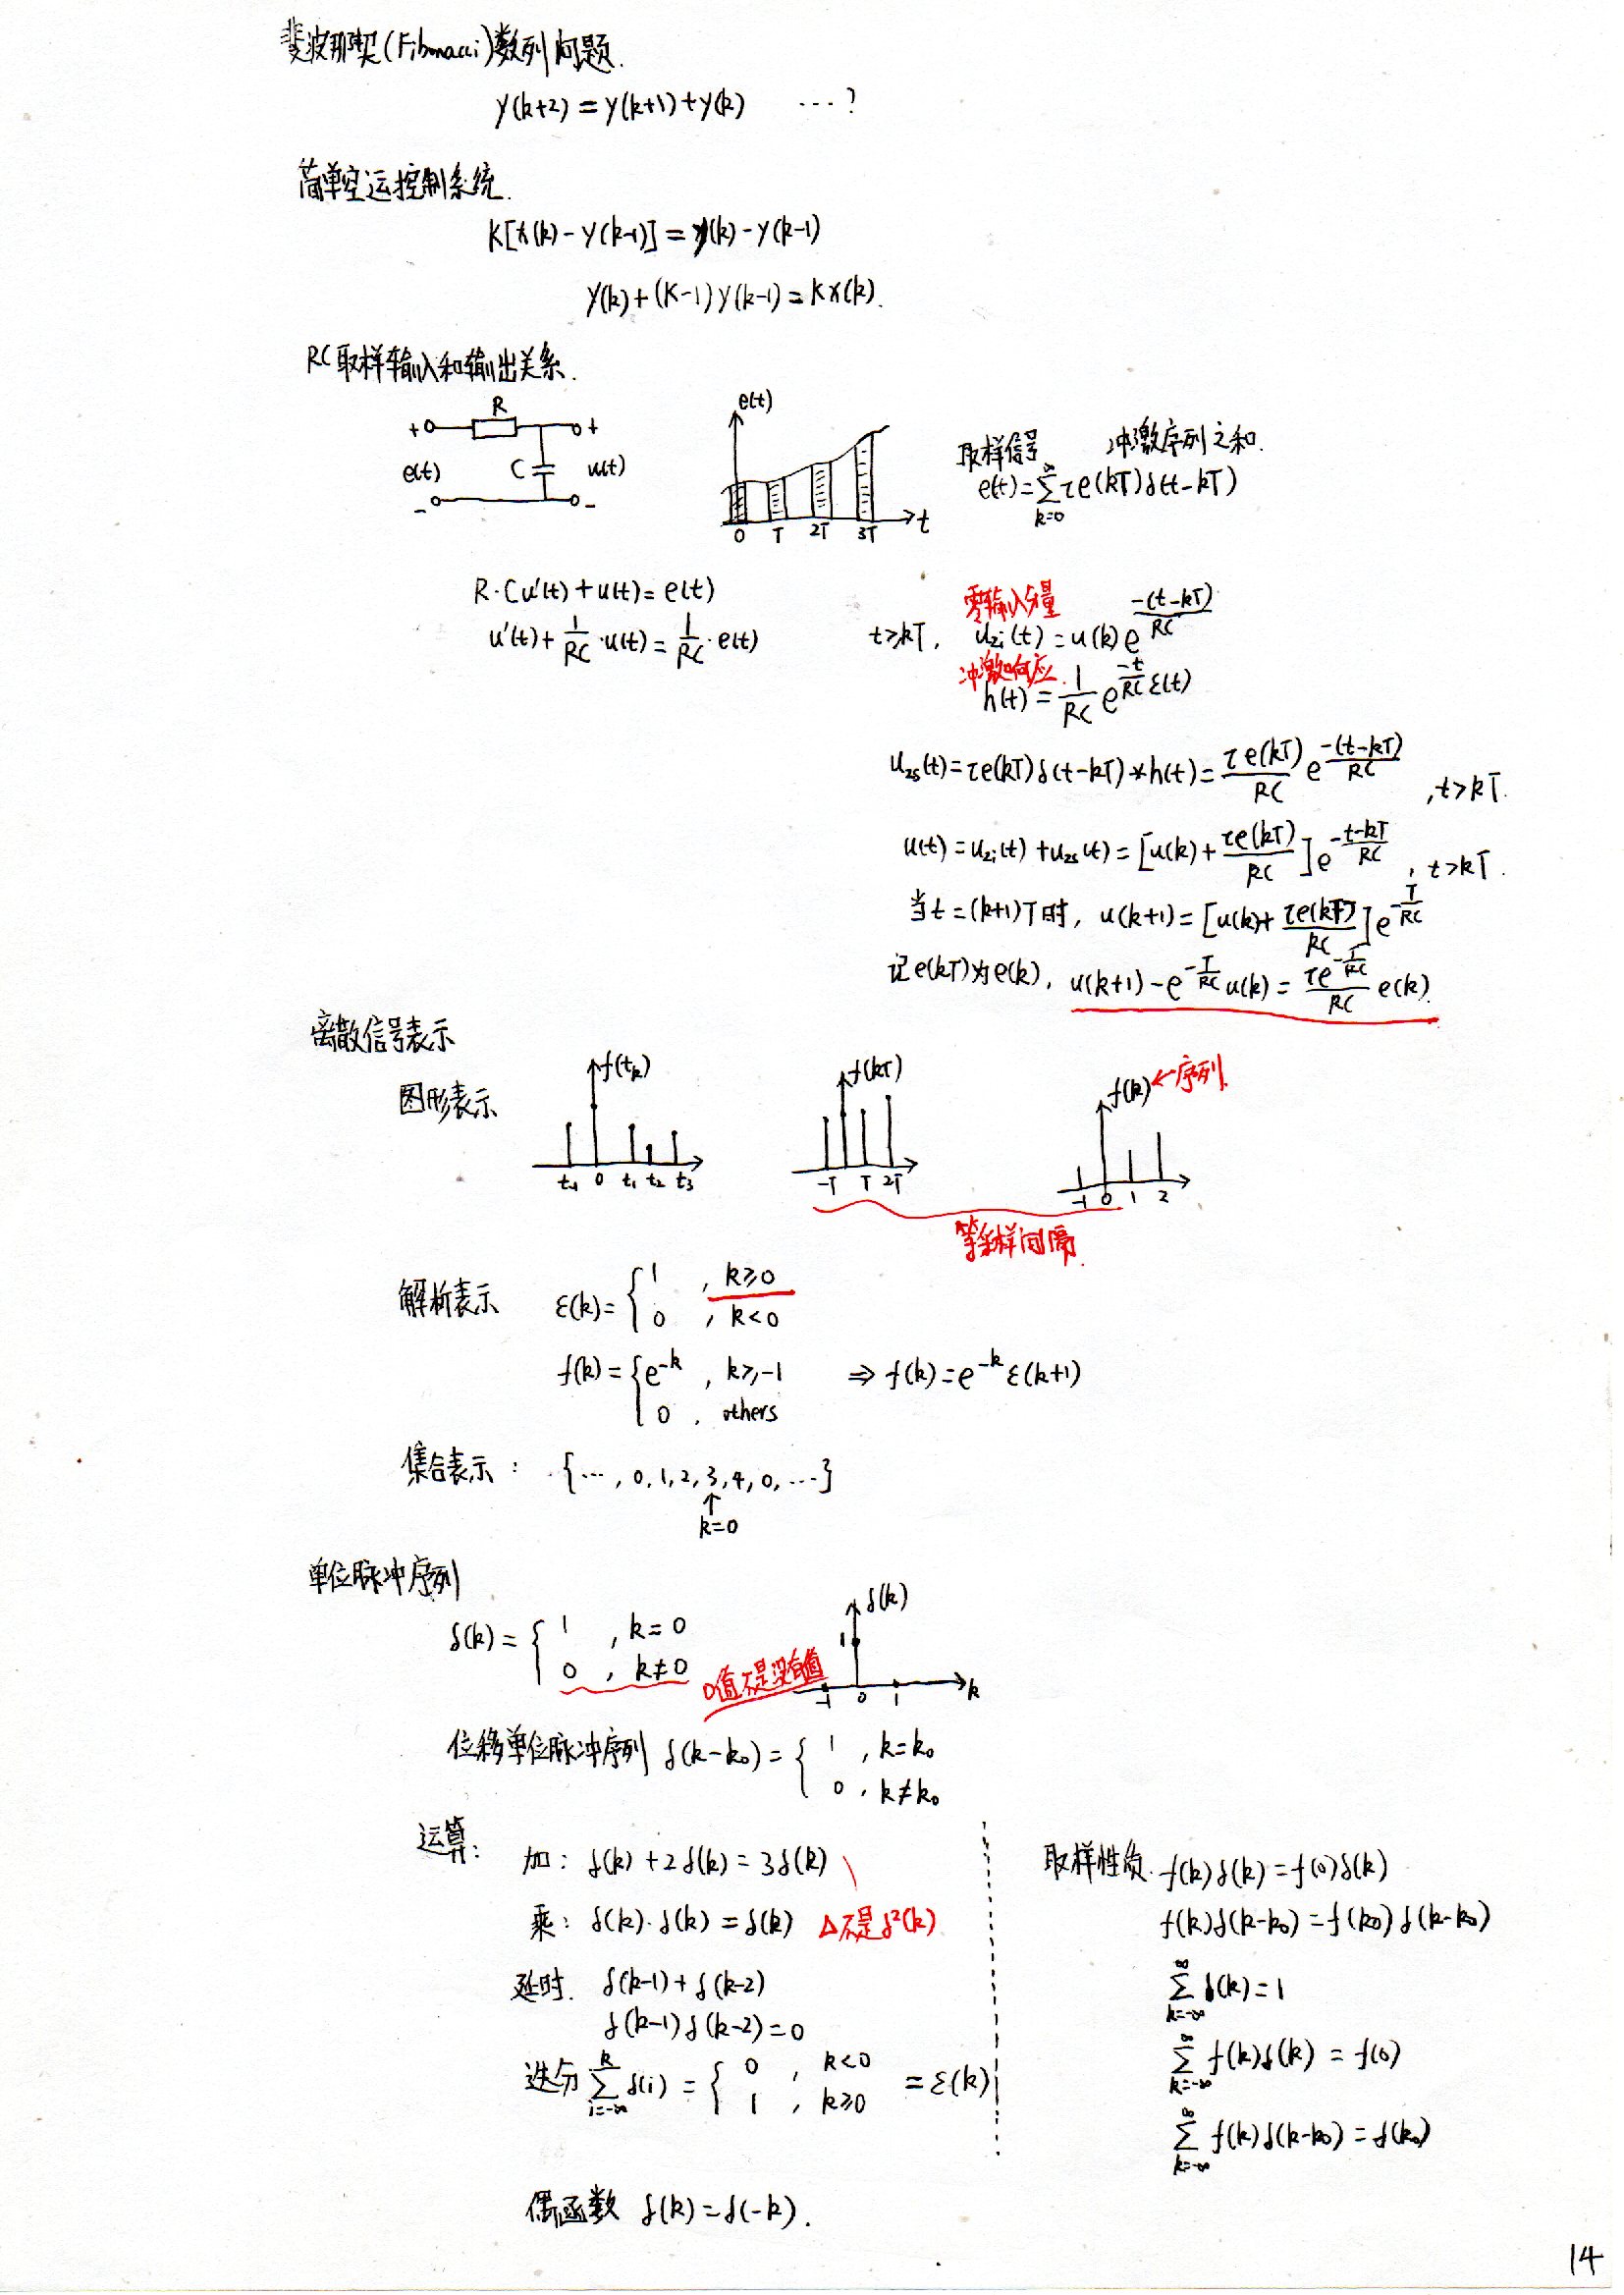 斐波那契(Fibonacci)数列问题.
y(k+2)=y(k+1)+y(k) …?
简单空运控制系统.
K[x(k)-y(k-1)]=y(k)-y(k-1)
y(k)+(K-1)y(k-1)=Kx(k).
RC取样输入和输出关系.
R
+ +
e(t) C u(t)
- -
e(t)
0 T 2T 3T t
取样信号 冲激序列之和.
e(t)=∑_{k=0}^{∞} τe(kT)δ(t-kT)
R·Cu'(t)+u(t)=e(t)
u'(t)+\frac{1}{RC}·u(t)=\frac{1}{RC}·e(t)
零输入分量
t≥kT, u_{zi}(t)=u(k)e^{\frac{-(t-kT)}{RC}}
冲激响应
h(t)=\frac{1}{RC}e^{\frac{-t}{RC}}ε(t)
u_{zs}(t)=τe(kT)δ(t-kT)*h(t)=\frac{τe(kT)}{RC}e^{\frac{-(t-kT)}{RC}}, t>kT.
u(t)=u_{zi}(t)+u_{zs}(t)=[u(k)+\frac{τe(kT)}{RC}]e^{-\frac{t-kT}{RC}}, t>kT.
当t=(k+1)T时, u(k+1)=[u(k)+\frac{τe(kT)}{RC}]e^{-\frac{T}{RC}}
记e(kT)为e(k), u(k+1)-e^{-\frac{T}{RC}}u(k)=\frac{τe^{-\frac{T}{RC}}}{RC}e(k).
离散信号表示
图形表示
f(t_k)
t_{-1} 0 t_1 t_2 t_3
f(kT)
-T T 2T
f(k)←序列
-1 0 1 2
等采样间隔.
解析表示 ε(k)={1, k≥0
0, k<0
f(k)={e^{-k}, k≥-1 ⇒ f(k)=e^{-k}ε(k+1)
0, others
集合表示: {…,0,1,2,3,4,0,…}
↑
k=0
单位脉冲序列
δ(k)={1, k=0
0, k≠0
0值不是没有值
δ(k)
1
-1 0 1 k
位移单位脉冲序列 δ(k-k_0)={1, k=k_0
0, k≠k_0
运算:
加: δ(k)+2δ(k)=3δ(k)
乘: δ(k)·δ(k)=δ(k) △不是δ²(k)
延时. δ(k-1)+δ(k-2)
δ(k-1)δ(k-2)=0
迭分 ∑_{i=-∞}^{k} δ(i)={0, k<0
1, k≥0 =ε(k)
偶函数 δ(k)=δ(-k).
取样性质. f(k)δ(k)=f(0)δ(k)
f(k)δ(k-k_0)=f(k_0)δ(k-k_0)
∑_{k=-∞}^{∞} δ(k)=1
∑_{k=-∞}^{∞} f(k)δ(k)=f(0)
∑_{k=-∞}^{∞} f(k)δ(k-k_0)=f(k_0)
14